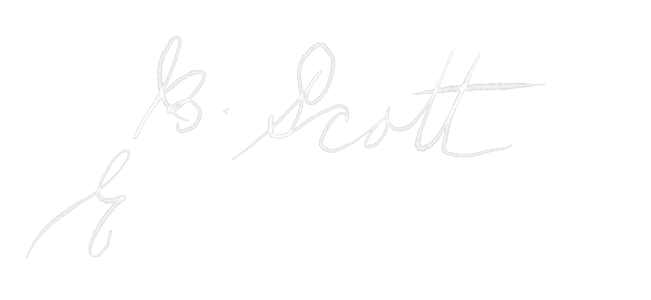 B. Scott